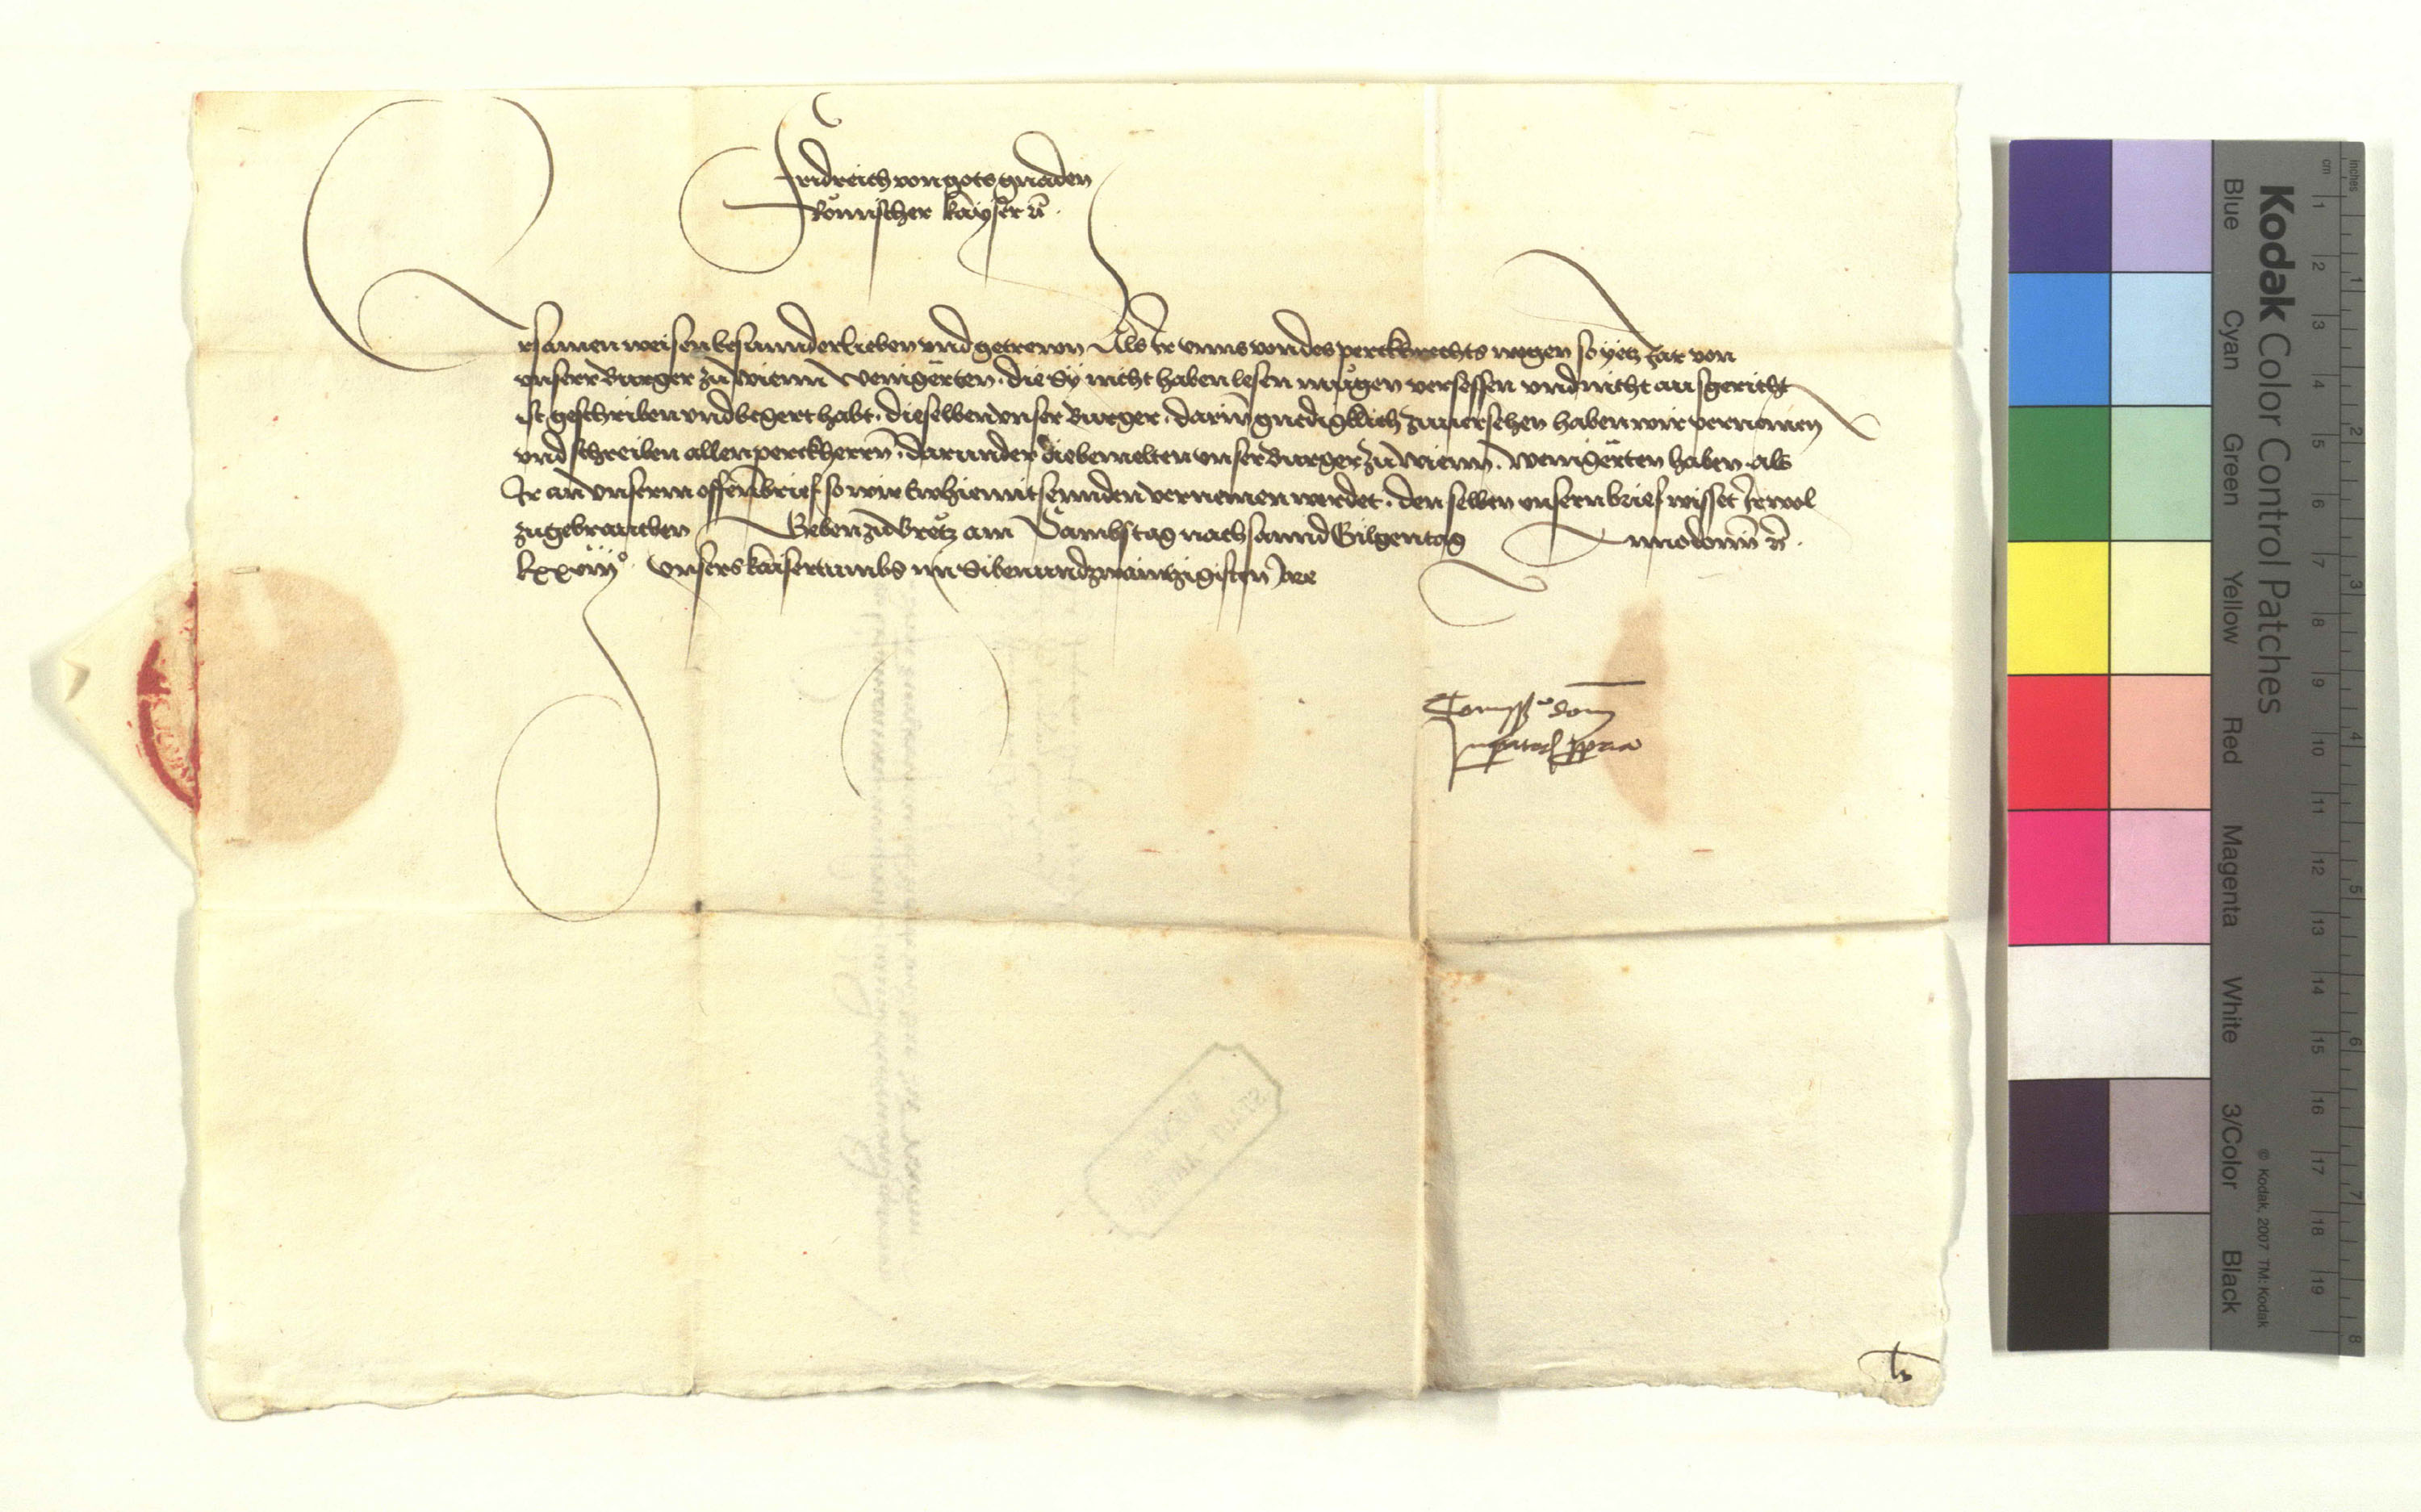 Fridreich von gots gnaden
Römischer kayser ꝛc̄.
Ersamen weisen besunnder lieben und getrewn Als Ir unns von des perckhrechts wegen so yetz zar von
unserr Burger zu Wienn Weingërten, die Sy nicht haben lesen mugen versessen und nicht ausgericht
ist geschriben und begert habt, dieselben unser Burger, darin̄ gnediglich zuuersehen haben wir vernomen
und schreiben allen perckherrn̄, darunder die bemelten unser Burger zu Wienn, Weingërten haben als
Ir an unserm offenn brief so wir Ew hiemit sennden vernemen werdet, den selben unsern brief wisset Ir wol
zugebrauchen Geben zu Gretz am Sambstag nach sannd Gilgentag Anno domini ꝛc̄.
lxxviijº Unsers kaisertumbs im Sibenundzwaintzigisten Jare
Com̄issio dom̄
Imperatoris ppria
Kodak Color Control Patches
Blue Cyan Green Yellow Red Magenta White 3/Color Black
© Kodak, 2007 TM: Kodak
inches 1 2 3 4 5 6 7 8
cm 1 2 3 4 5 6 7 8 9 10 11 12 13 14 15 16 17 18 19